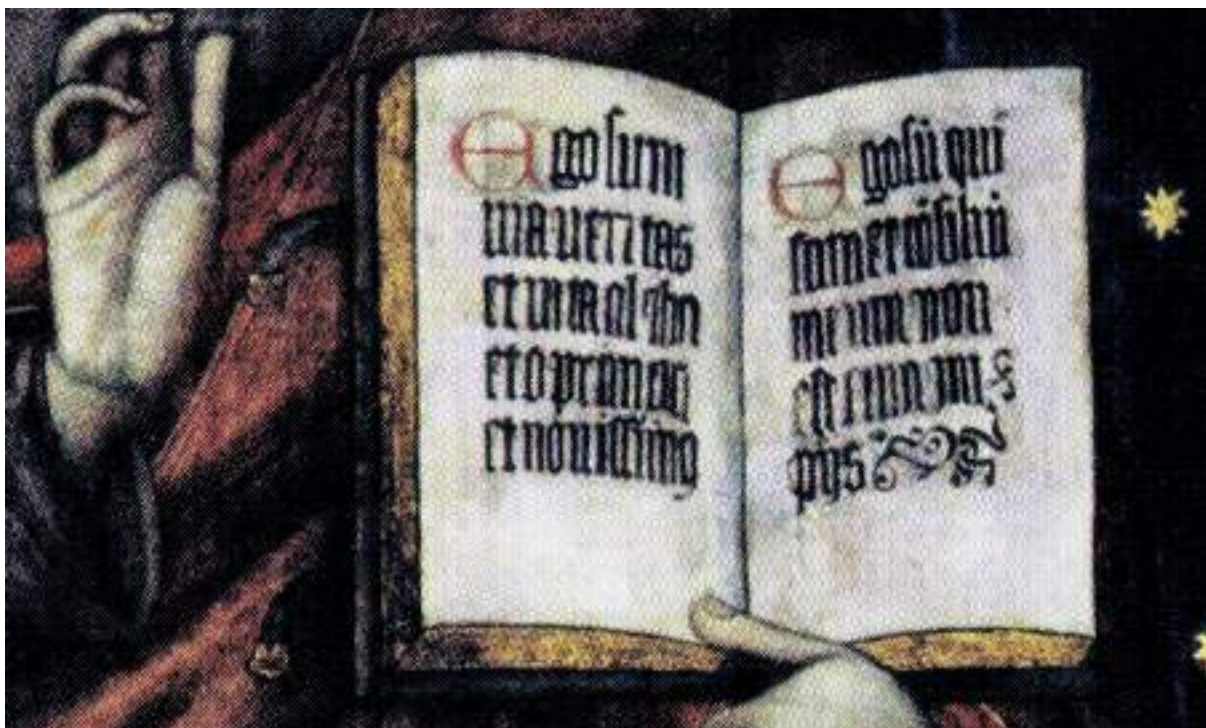 Ego sum
uia ueritas
et uita alpha
et o primꝰ
et nouissimꝰ
Ego sū qui
sum et cōsiliū
meum non
est cum im
pijs